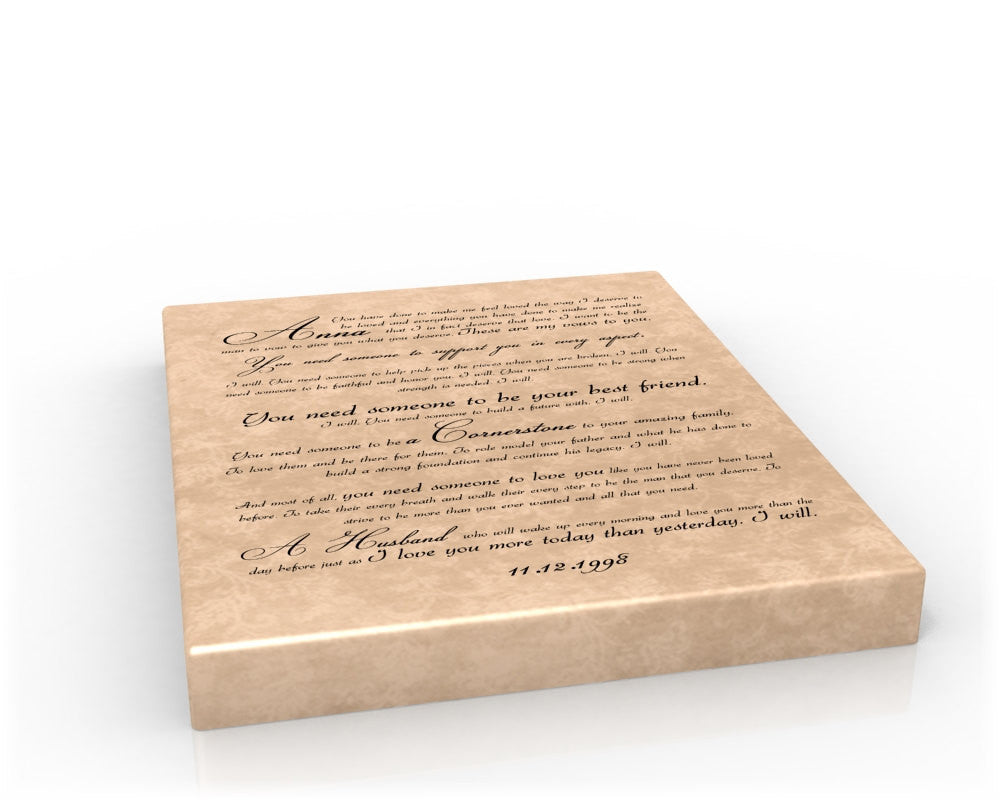 You have done to make me feel loved the way I deserve to
be loved and everything you have done to make me realize
Anna that I in fact deserve that love. I want to be the
man to vow to give you what you deserve. These are my vows to you.
You need someone to support you in every aspect.
I will. You need someone to help pick up the pieces when you are broken. I will. You
need someone to be faithful and honor you. I will. You need someone to be strong when
strength is needed. I will.
You need someone to be your best friend.
I will. You need someone to build a future with. I will.
You need someone to be a Cornerstone to your amazing family.
To love them and be there for them. To role model your father and what he has done to
build a strong foundation and continue his legacy. I will.
And most of all, you need someone to love you like you have never been loved
before. To take their every breath and walk their every step to be the man that you deserve. To
strive to be more than you ever wanted and all that you need.
A Husband who will wake up every morning and love you more than the
day before just as I love you more today than yesterday. I will.
11.12.1998